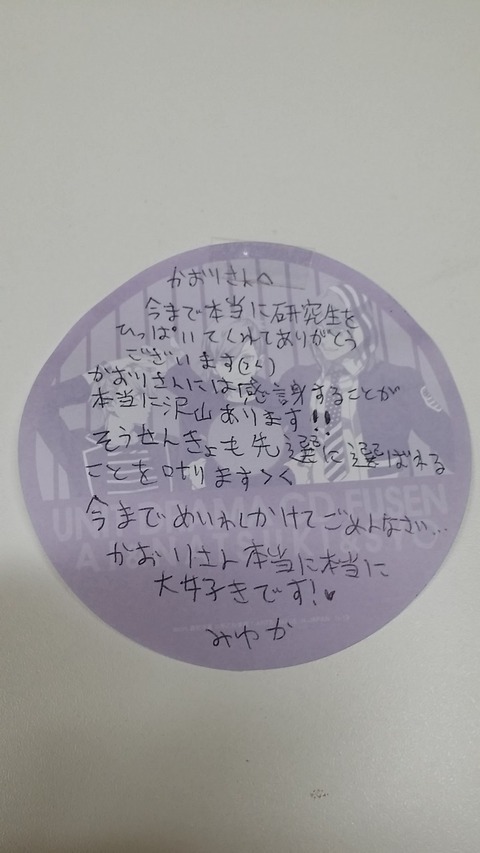 かおりさんへ
今まで本当に研究生を
ひっぱいてくれてありがとう
ございます(><)
かおりさんには感謝することが
本当に沢山あります!!
そうせんきょも先選に選ばれる
ことを叶ります><
今までめいわくかけてごめんなさい...
かおりさん本当に本当に
大好きです!♥
みやか
CD FUSEN